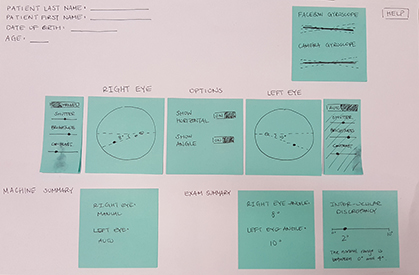 PATIENT LAST NAME:
PATIENT FIRST NAME:
DATE OF BIRTH:
AGE:
HELP
FACEBOW GYROSCOPE
CAMERA GYROSCOPE
RIGHT EYE
OPTIONS
LEFT EYE
SHUTTER
BRIGHTNESS
CONTRAST
SHOW
HORIZONTAL
ON
SHOW
ANGLE
ON
AUTO
SHUTTER
BRIGHTNESS
CONTRAST
MACHINE SUMMARY
EXAM SUMMARY
RIGHT EYE:
MANUAL
LEFT EYE:
AUTO
RIGHT EYE ANGLE:
8°
LEFT EYE ANGLE:
10°
INTER-OCULAR
DISCREPANCY
2°
THE NORMAL RANGE IS
BETWEEN 0° AND 4°